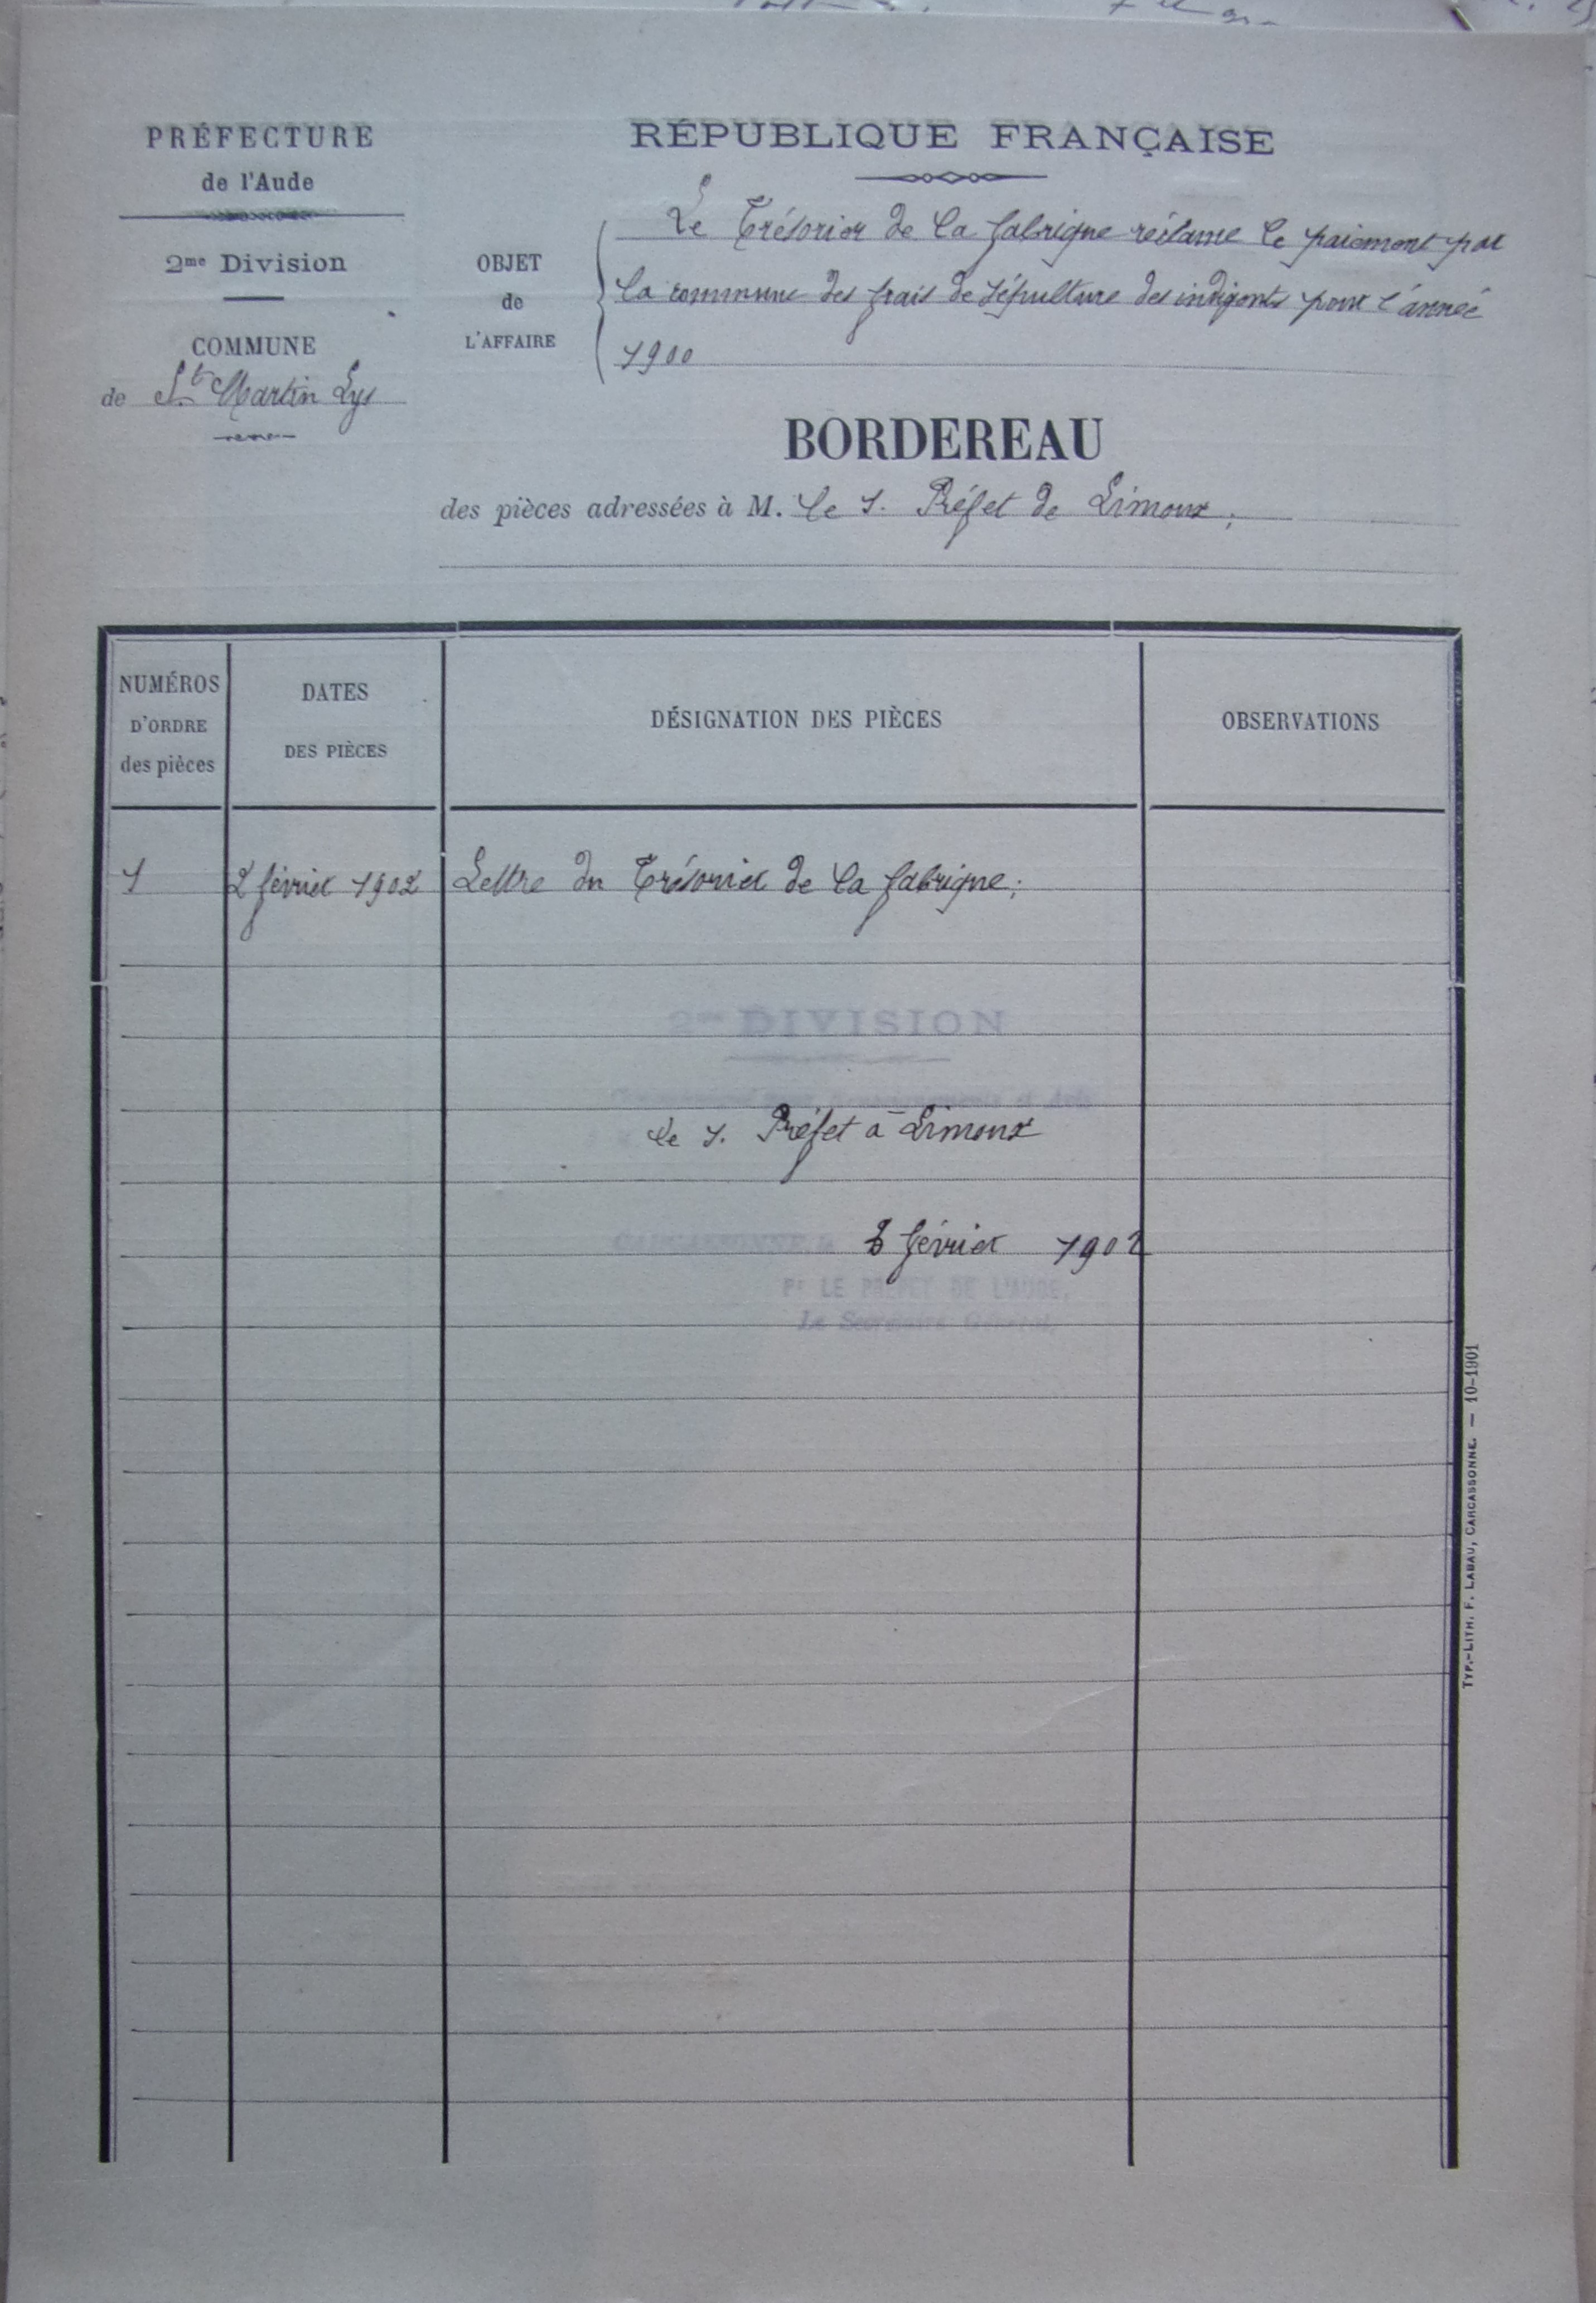 PRÉFECTURE
de l'Aude
2me Division
COMMUNE
de St. Martin Lys
RÉPUBLIQUE FRANÇAISE
OBJET
de
L'AFFAIRE
Le Trésorier de la fabrique réclame le paiement par
la commune des frais de sépulture des indigents pour l'année
1900
BORDEREAU
des pièces adressées à M. le S. Préfet de Limoux;
NUMÉROS
D'ORDRE
des pièces
DATES
DES PIÈCES
DÉSIGNATION DES PIÈCES
OBSERVATIONS
1 2 février 1902 Lettre du Trésorier de la fabrique;
2me DIVISION
le S. Préfet à Limoux
CARCASSONNE le février 1902
Pr LE PRÉFET DE L'AUDE,
Le Secrétaire Général,
TYP.-LITH. F. LABAU, CARCASSONNE. — 10-1901